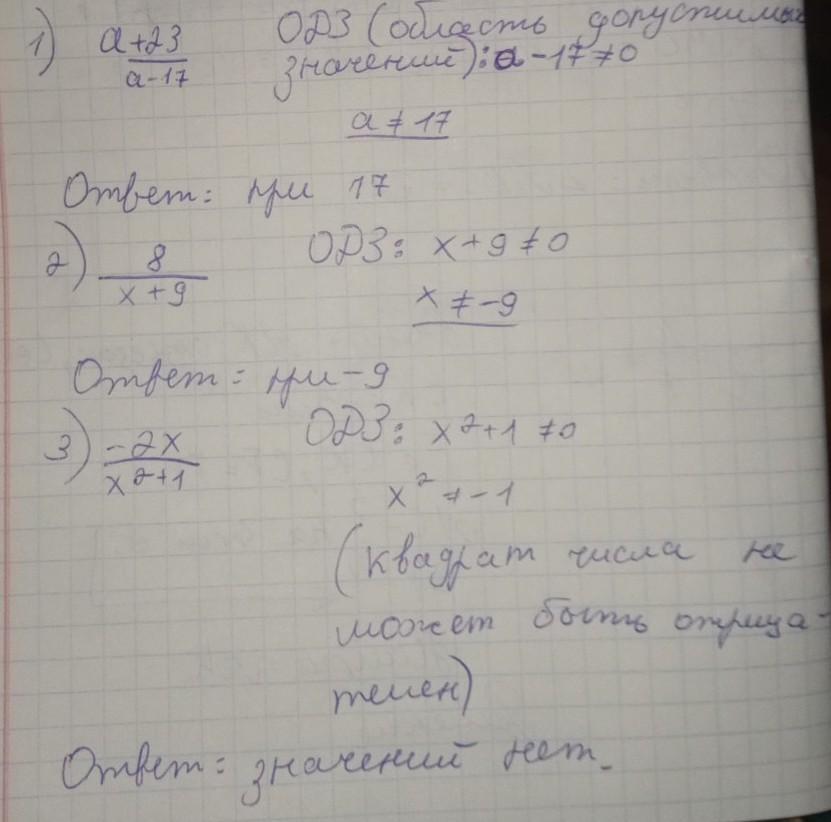 1) a+23 / a-17 ОДЗ (область допустимых
значений): a - 17 ≠ 0
a ≠ 17
Ответ: при 17
2) 8 / x+9 ОДЗ: x+9 ≠ 0
x ≠ -9
Ответ: при -9
3) -2x / x²+1 ОДЗ: x²+1 ≠ 0
x² ≠ -1
(квадрат числа не
может быть отрица-
телен)
Ответ: значений нет.